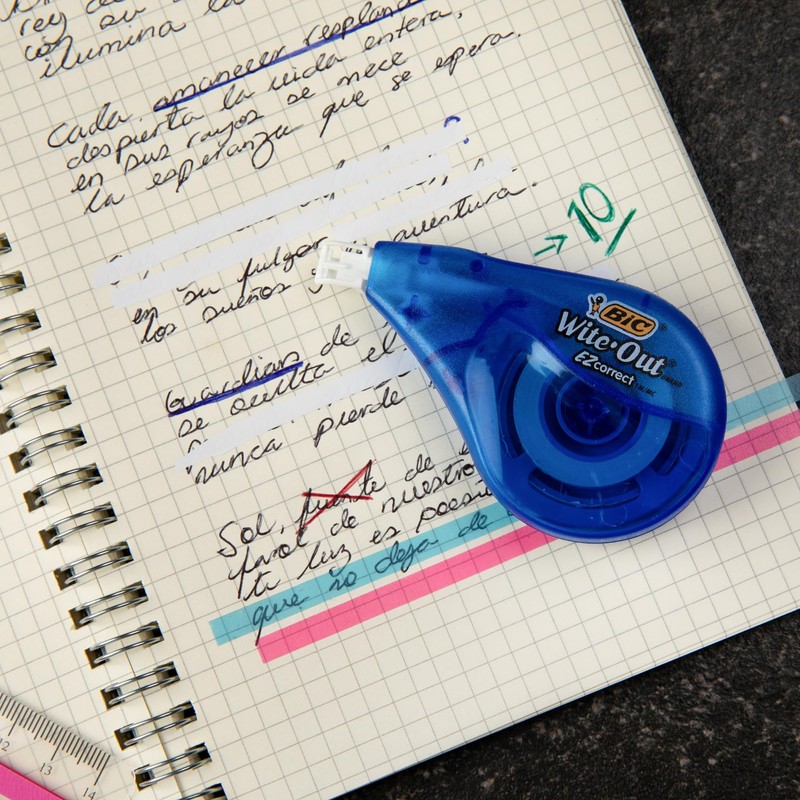 rey de
con su
ilumina la
Cada amanecer
despierta la vida entera,
en sus rayos se mece
la esperanza que se espera.
en su fulgor aventura.
los sueños y
Guardian de
se oculta el
nunca pierde
Sol, fuente de
farol de nuestro
tu luz es poesía
que no deja de
10
BIC
Wite·Out
EZcorrect
12
13
14